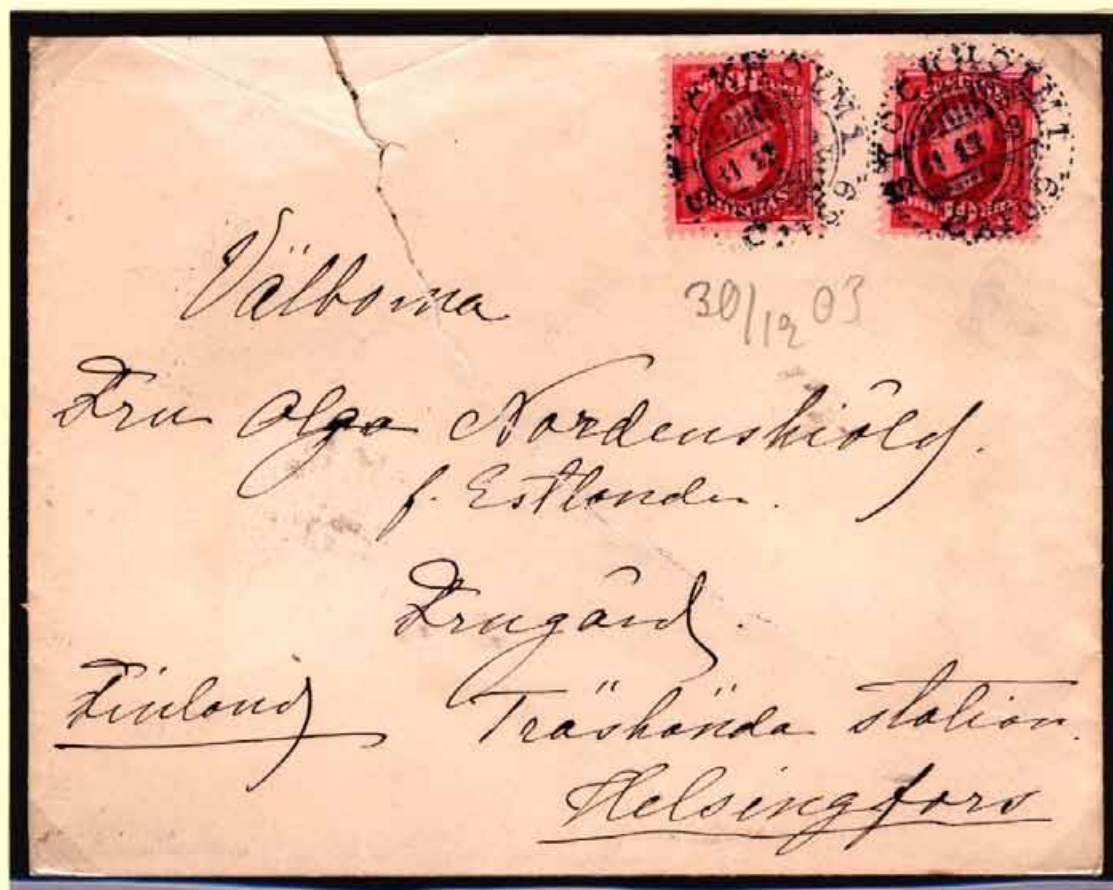 STOCKHOLM 1
31 12
STOCKHOLM 1
31 12
30/12 03
Välborna
Fru Olga Nordenskiöld.
f. Estlander.
Frugård.
Finland
Träskända station.
Helsingfors